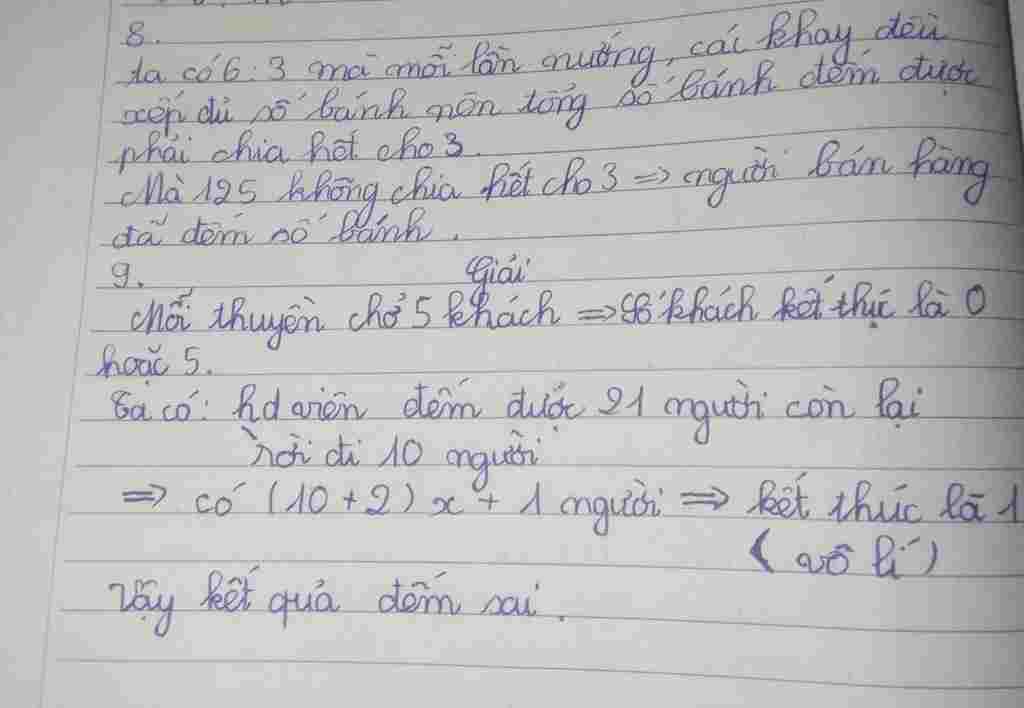 8.
ta có 6 : 3 mà mỗi lần nướng, cái khay đều
xếp đủ số bánh nên tổng số bánh đếm được
phải chia hết cho 3.
Mà 125 không chia hết cho 3 => người bán hàng
đã đếm số bánh.
9. Giải
Mỗi thuyền chở 5 khách => Số khách kết thúc là 0
hoặc 5.
Ta có: hd viên đếm được 21 người còn lại
rời đi 10 người
=> có (10 + 2) x + 1 người => kết thúc là 1
(vô lí)
Vậy kết quả đếm sai.